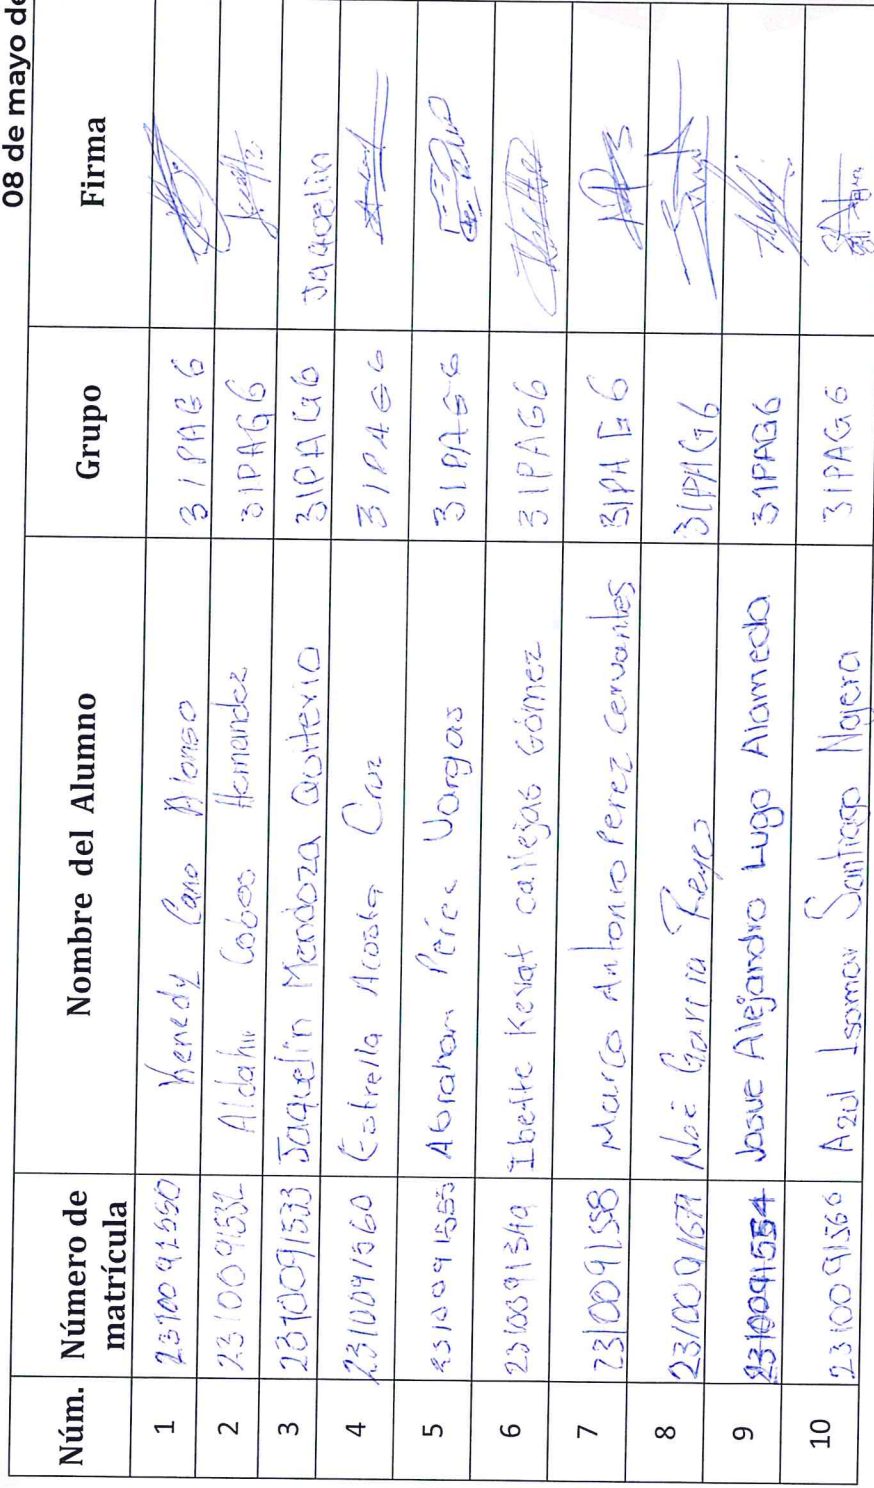 08 de mayo de
Núm. Número de matrícula Nombre del Alumno Grupo Firma
1 2310091550 Kenedy Cano Alonso 31PAG6
2 2310091532 Aldahir Cobos Hernandez 31PAG6
3 2310091533 Jaquelin Mendoza Quiterio 31PAG6 Jaquelin
4 2310091560 Estrella Acosta Cruz 31PAG6
5 Abraham Pérez Vargas 31PAG6
6 2310091549 Ibette Kevat callejas Gómez 31PAG6
7 231009158 Marco Antonio Perez Cervantes 31PAG6
8 2310091679 Noé Garcia Reyes 31PAG6
9 2310091554 Josue Alejandro Lugo Alameda 31PAG6
10 2310091566 Azul Isamar Santiago Najera 31PAG6